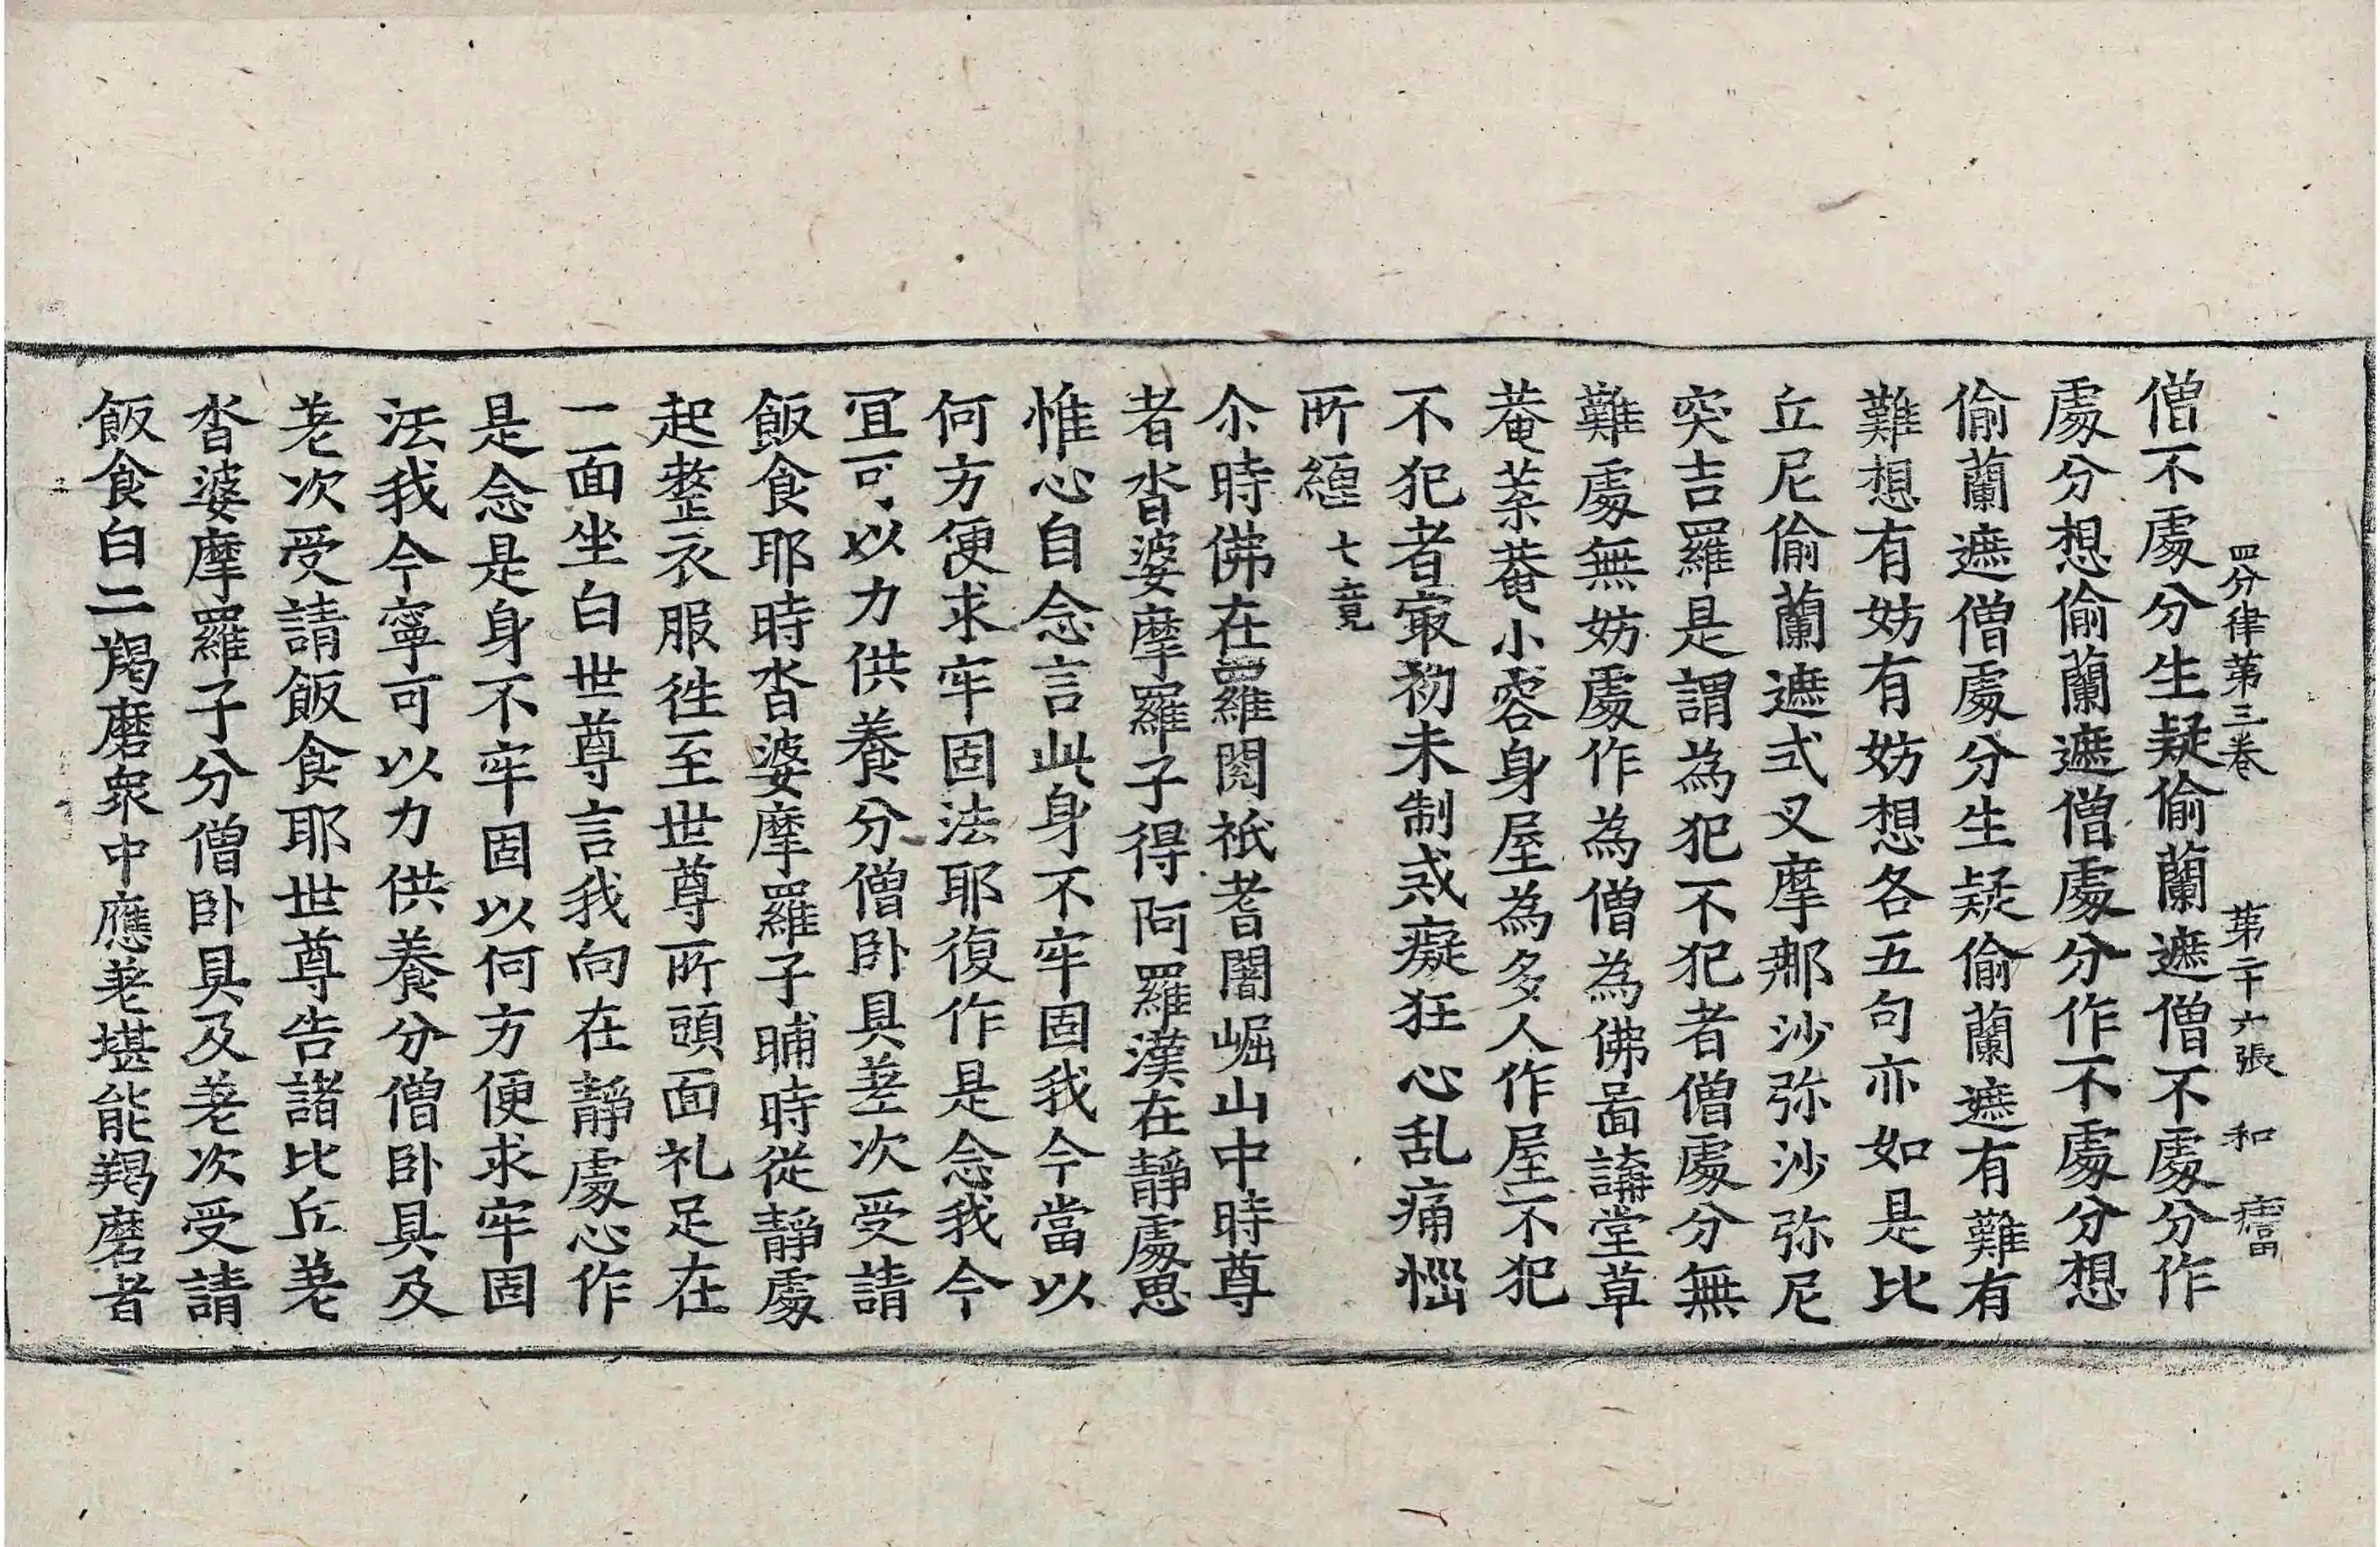 四分律第三卷 第二十六張 和
僧不處分生疑偷蘭遮僧不處分作
處分想偷蘭遮僧處分作不處分想
偷蘭遮僧處分生疑偷蘭遮有難有
難想有妨有妨想各五句亦如是比
丘尼偷蘭遮式叉摩那沙弥沙弥尼
突吉羅是謂為犯不犯者僧處分無
難處無妨處作為僧為佛啚講堂草
菴葉菴小容身屋為多人作屋不犯
不犯者㝡初未制戒癡狂心乱痛惱
所纏 七竟
尒時佛在羅閱祇耆闍崛山中時尊
者沓婆摩羅子得阿羅漢在靜處思
惟心自念言此身不牢固我今當以
何方便求牢固法耶復作是念我今
冝可以力供養分僧卧具差次受請
飯食耶時沓婆摩羅子晡時從靜處
起整衣服徃至世尊所頭面礼足在
一面坐白世尊言我向在靜處心作
是念是身不牢固以何方便求牢固
法我今寧可以力供養分僧卧具及
差次受請飯食耶世尊告諸比丘差
沓婆摩羅子分僧卧具及差次受請
飯食白二羯磨衆中應差堪能羯磨者